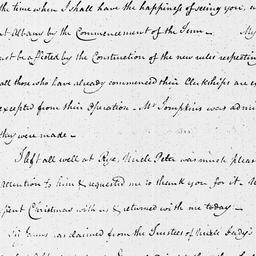 the time when I shall have the happiness of seeing you,
at Albany by the Commencement of the Term — My
not be affected by the Construction of the new rules respecting
all those who have already commenced their Clerkships are
excepted from their Operation — Mr Tompkins was
they were made —
I left all well at Rye, Uncle Peter was much pleas
attention to him & requested me to thank you for it —
spent Christmas with us & returned with me today —
claimed from the Trustees of Uncle